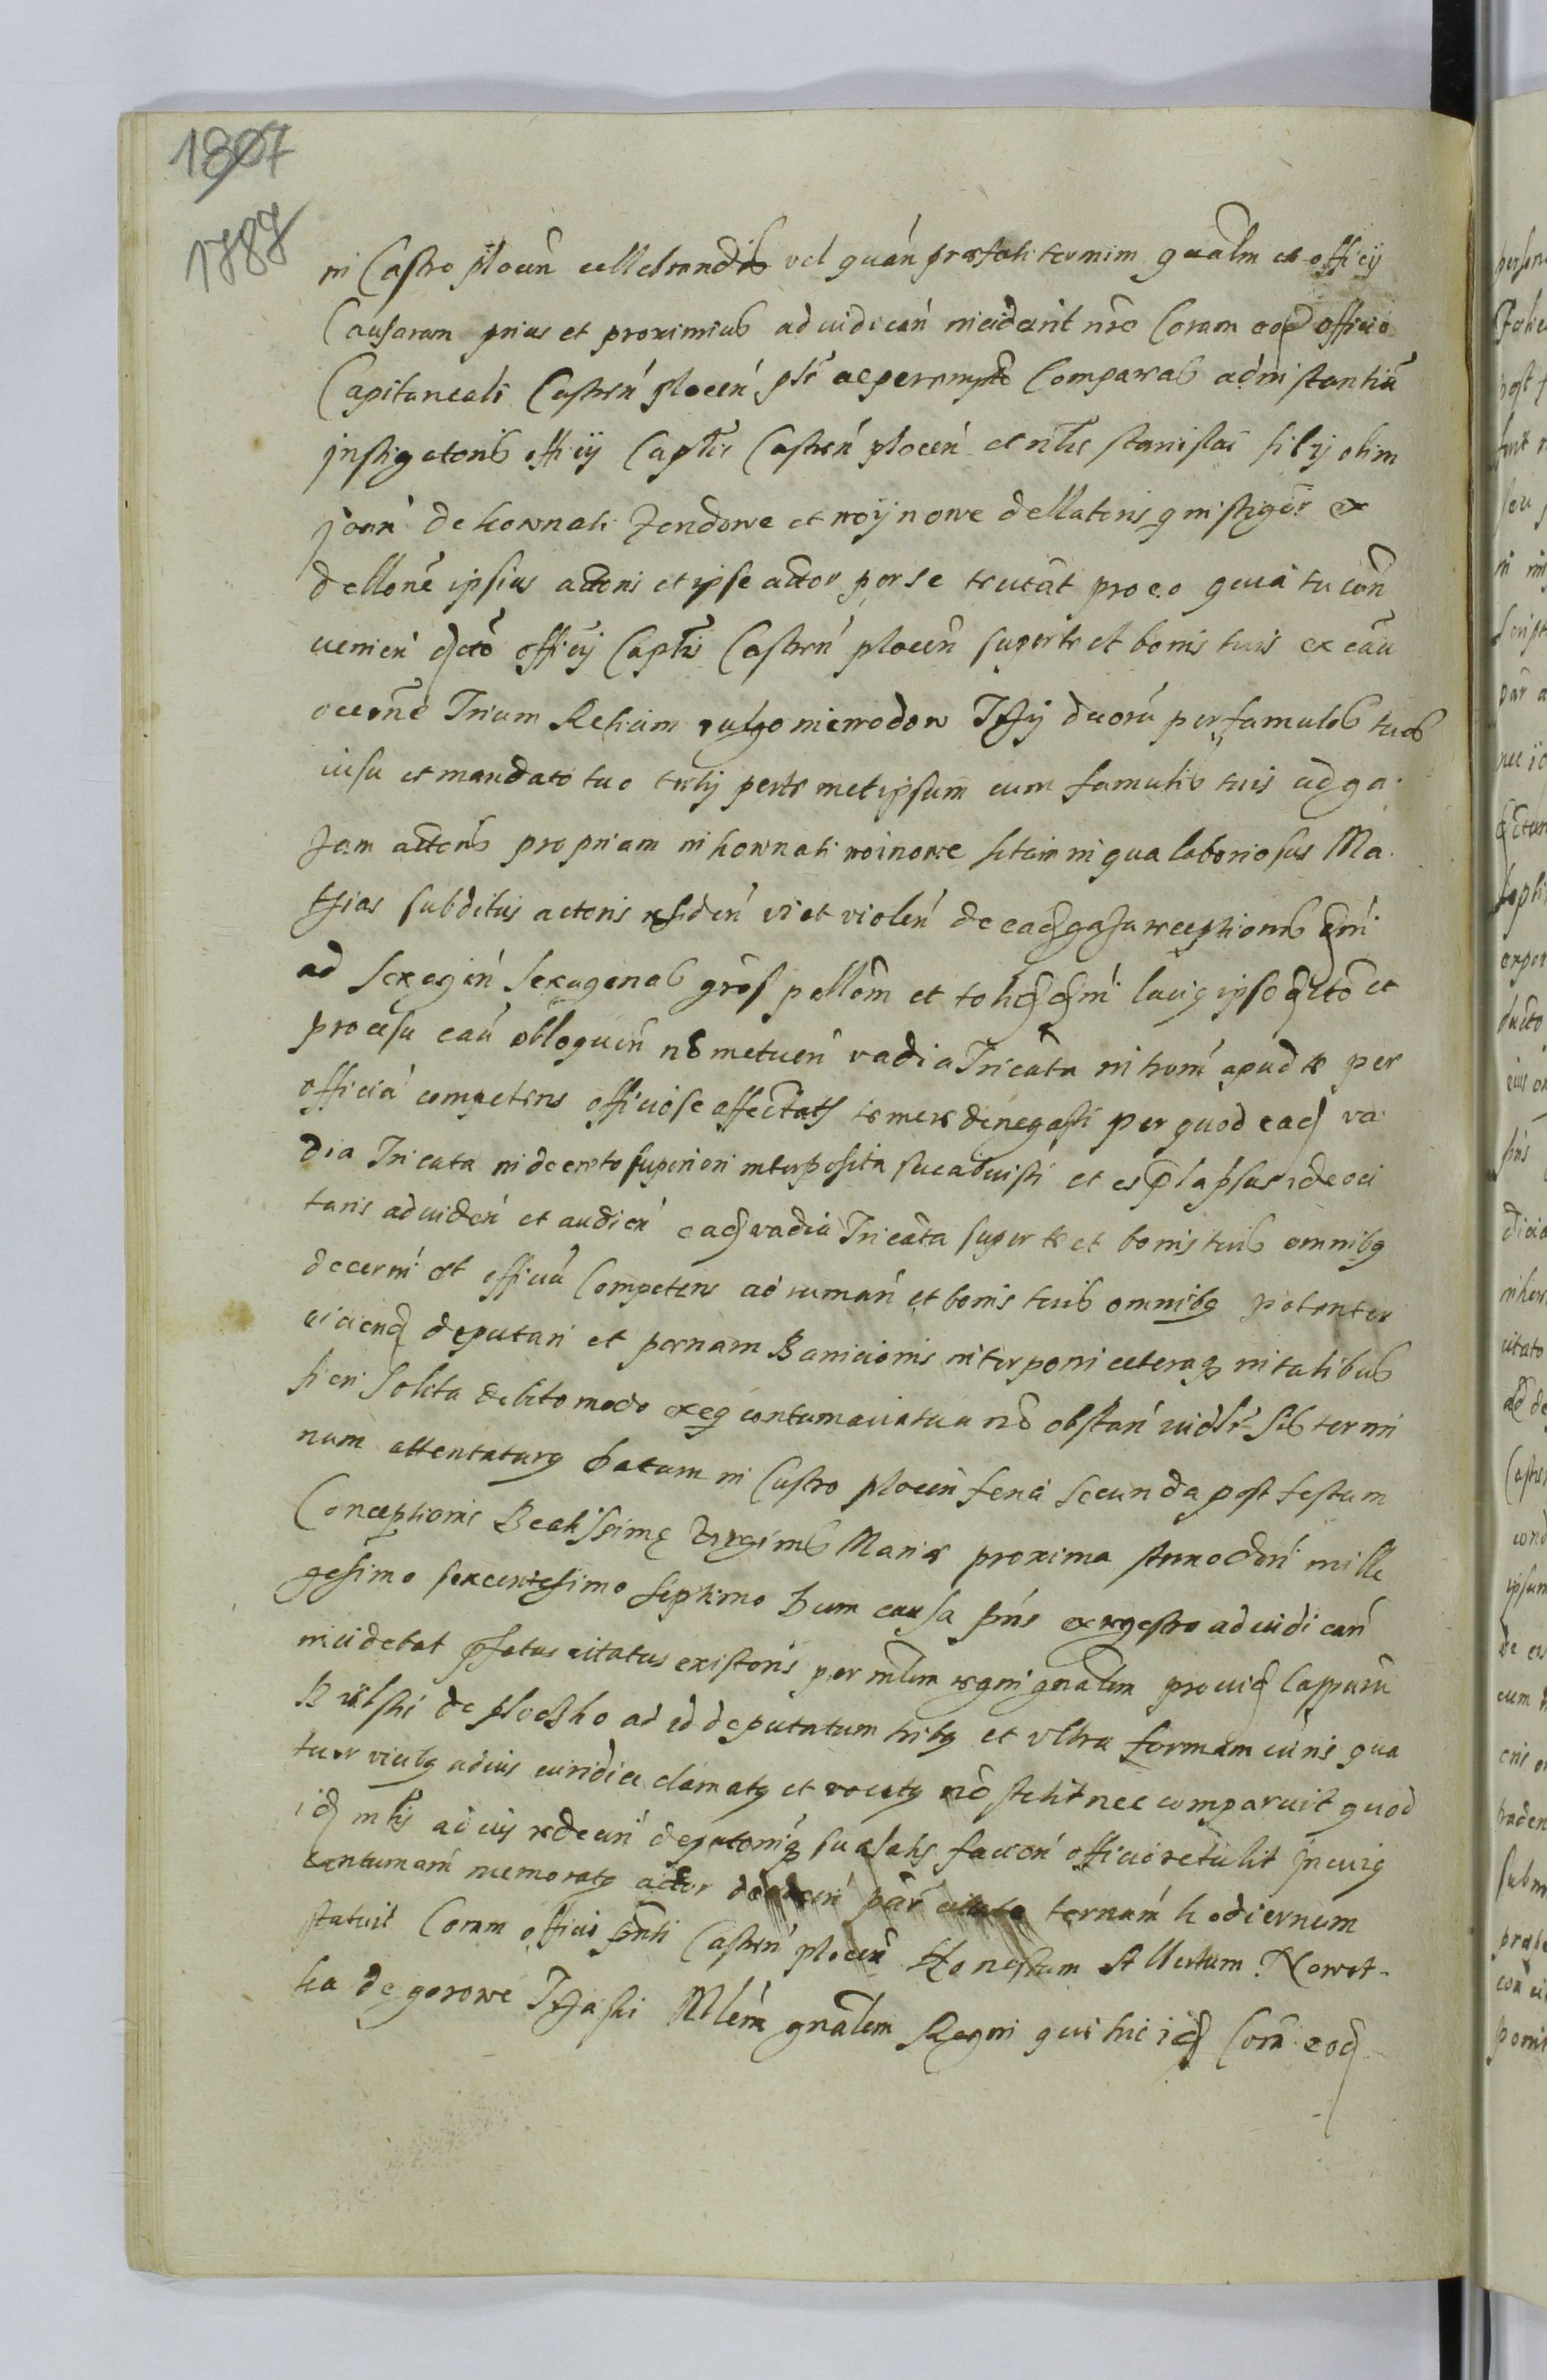 1807
1787
in Castro plocen cellebrandis vel quan praefati termini gnalm et officij
Causarum prius et proximius ad iudicań inciderit nro Coram eod officio
Capitaneali Castreń plocen plr ac perempte Comparas ad instantia
jnstigatoris officij Captis Castreń plocen et nlis stanislai filij olim
joań de kownati Zendowe et woijnowe dellatoris q instiger ex
dellone ipsius actoris et ipse actor per se te citat pro eo quia tu con
venień dcto officij Captis Castreń plocen super te et bonis tuis ex cau
occone Trium Retium vulgo niewodow Tffij duoru per famulos tuos
iussu et mandato tuo tertij per te met ipsum cum famulis tuis ad ga
zam actoris propriam in kownati woinowe sitam in qua laboriosus Ma
thias subditus actoris resideń vi et violeń de ead gaza receptionis
ad sexagiń sexagenas gros pollon et totid luciq ipso dcto et
processu cau obloqueń no metueń vadia Tricata in hom apud te per
officiu competens officiose affectats temere denegasti per quod ead va
dia Tricata in decreto superiori interposita sucabuisti et es lapsus ideo ci
taris ad videń et audień ead vadia Tricata super te et bonis tuis omnibq
decerni et officiu Competens ad iumań et bonis tuis omnibq potenter
eiciend deputari et poenam Banicionis interponi ceteraq in talibus
fieri solita debito modo exeq contumacia tua no obstań iudlr Sub termi
num attentaturq Datum in Castro plocen feria secunda post festum
Conceptionis Beatissimę Virginis Mariae proxima Anno dni mille
gesimo sexcentesimo septimo Dum causa pns ex regestro ad iudicań
incidebat pfatus citatus existens per mlem regni gnalem provid Casparu
Bielski de plocsko ad id deputatum tribq et ultra formam iuris qua
tuor vicibq ad ius iuridice clamatq et vocatq no stetit nec comparuit quod
id mlis ad ius redeuń deputoniq sua satis facień officio retulit Jn cuiq
contumam memoratq actor par citato termam hodiernum
statuit Coram officio pnti Castreń plocen Honestum Albertum Nowot-
ka de gorowe Tffaski Mlem gnalem Regni qui hic id Cora eod